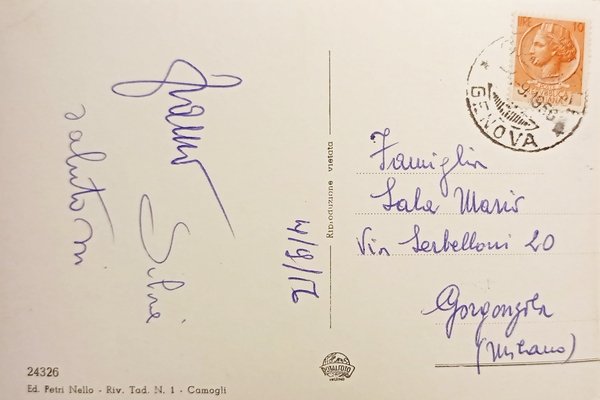 saluton
Silvia
4/9/56
Riproduzione vietata
10
GENOVA
Famiglia
Sala Mario
Via Serbelloni 20
Gorgonzola
(Milano)
24326
Ed. Petri Nello - Riv. Tad. N. 1 - Camogli